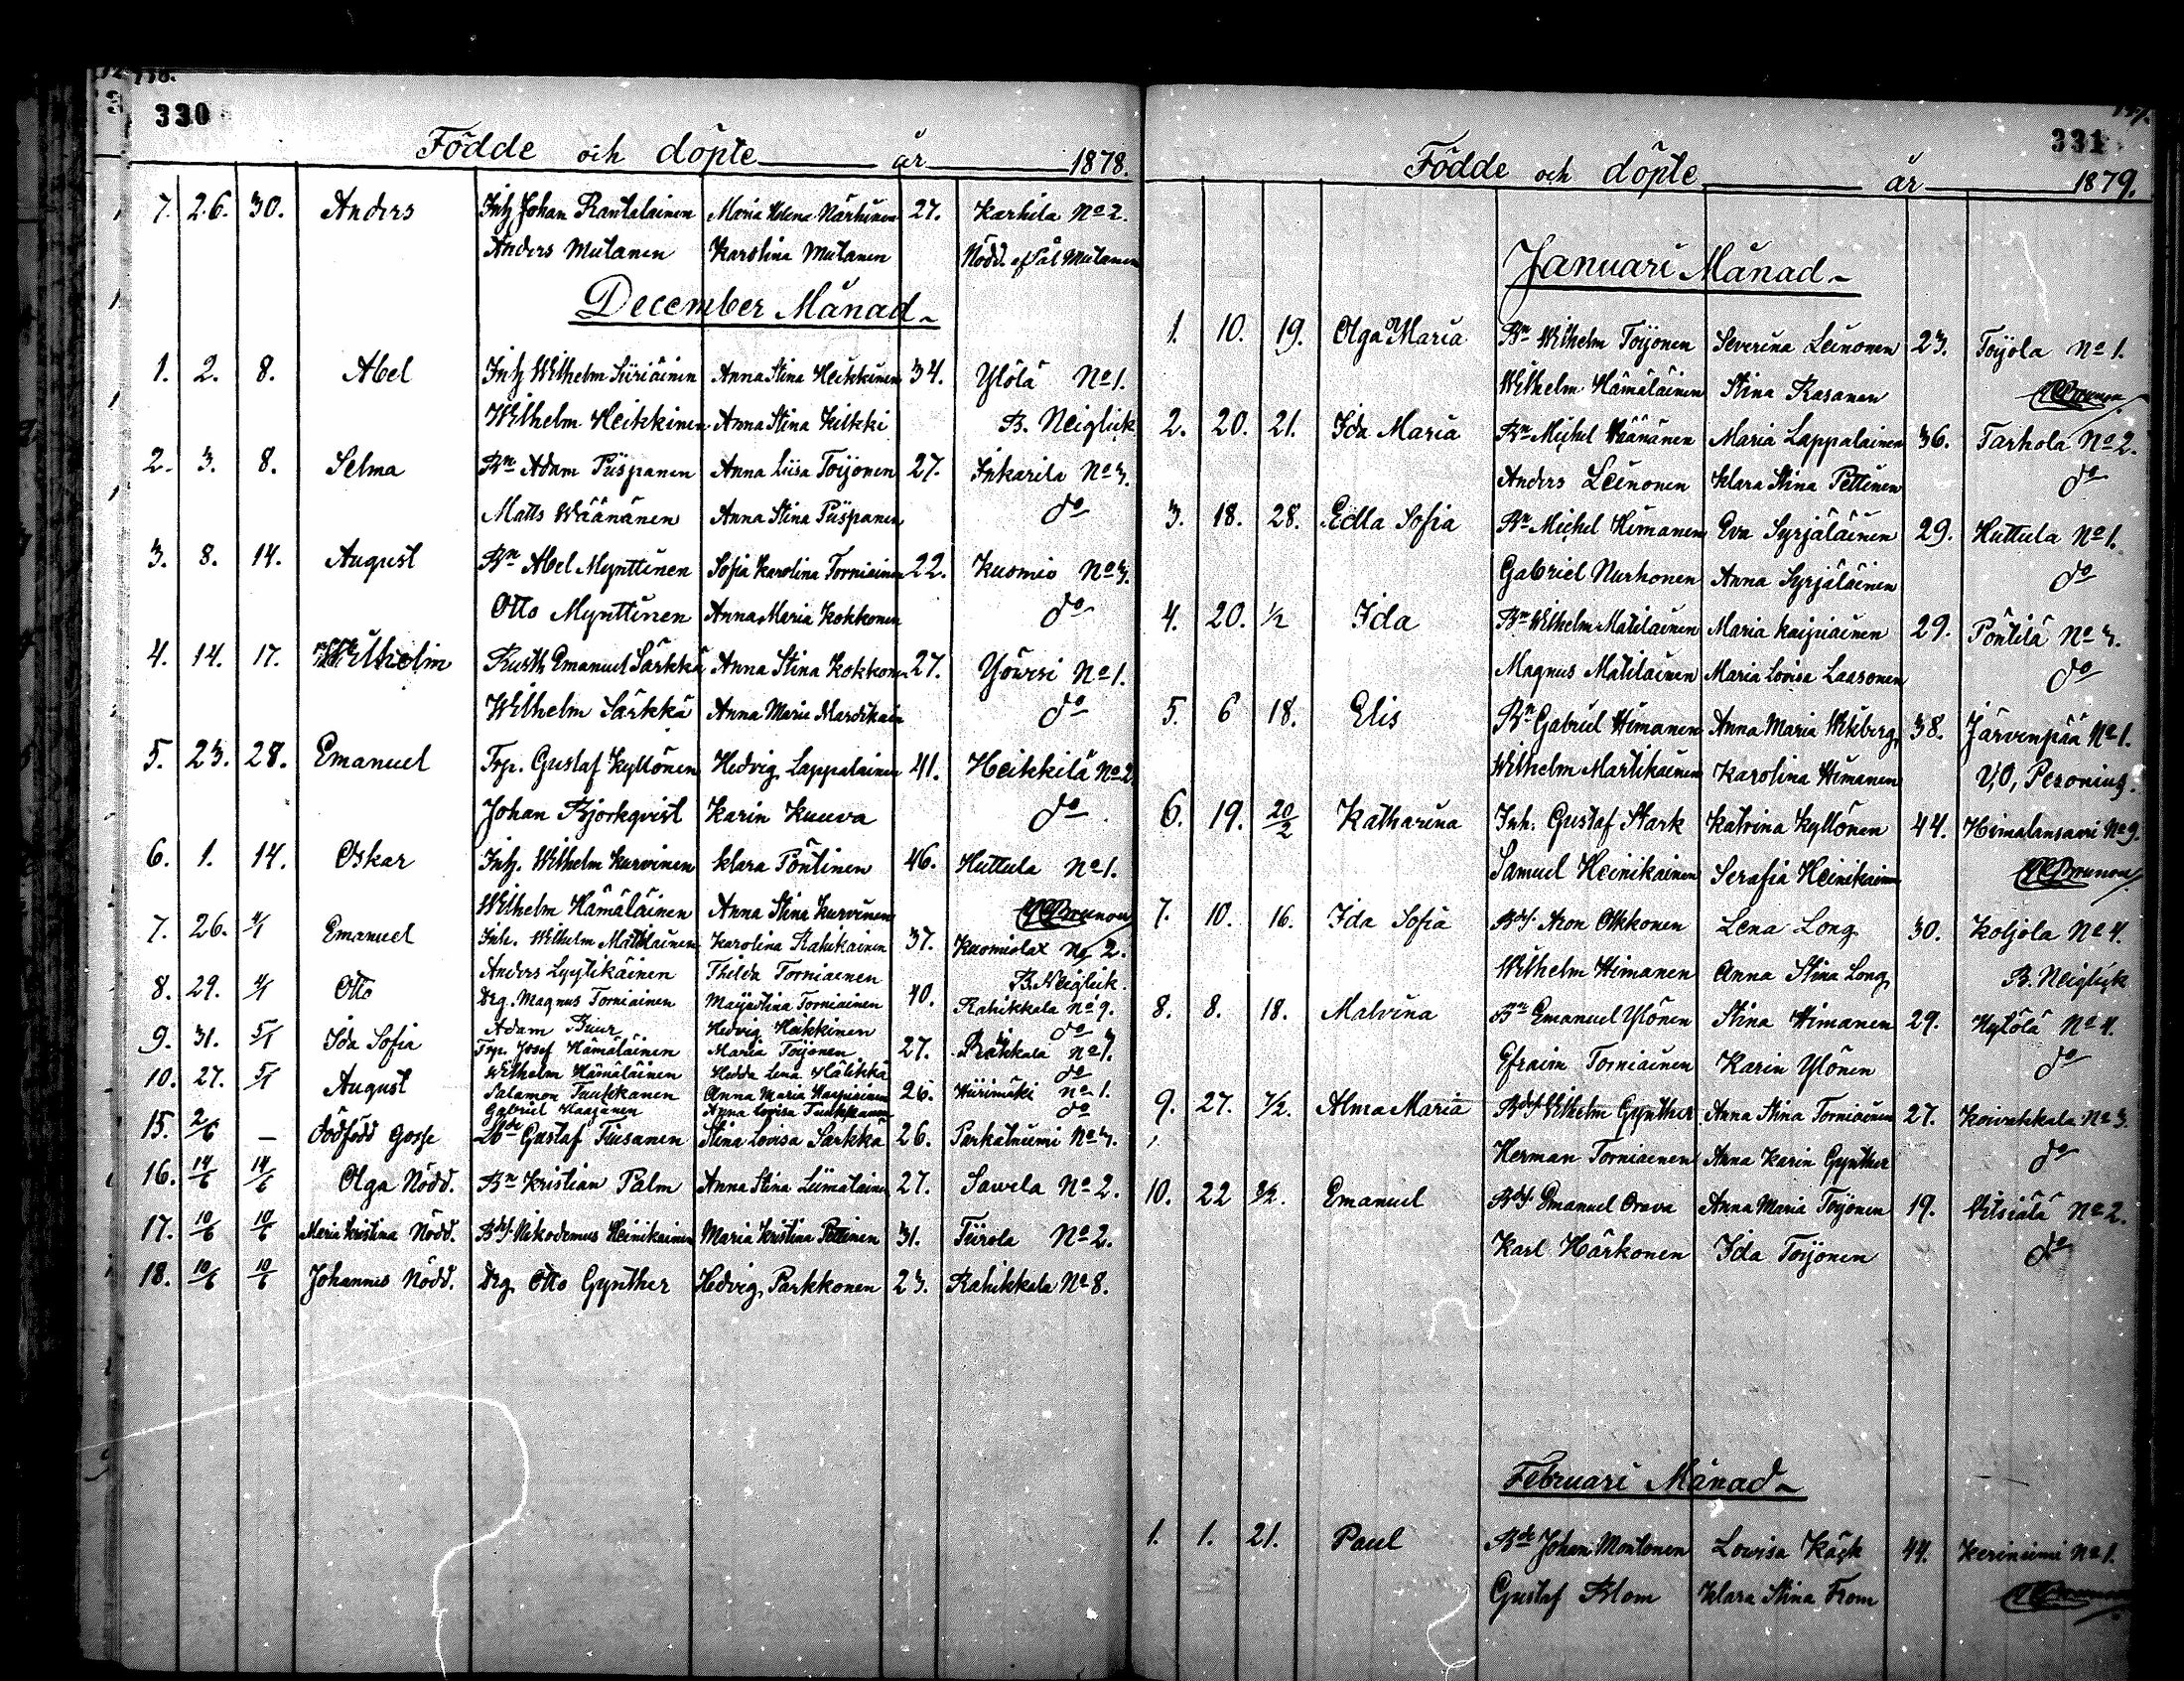 330
Födde och döpte år 1878.
7. 26. 30. Anders Inh Johan Rantalainen Maria Helena Närhinen 27. Karhila No 2.
Anders Mutanen Karolina Mutanen Nödd. af Pål Mutanen
December Månad
1. 2. 8. Abel Inh Wilhelm Siiriäinen Anna Stina Heikkinen 34. Ylölä No 1.
Wilhelm Heikkinen Anna Stina Kilkki B. Neiglick
2. 3. 8. Selma Bn Adam Piispanen Anna Liisa Toijonen 27. Inkarila No 3.
Matts Wäänänen Anna Stina Piispanen do
3. 8. 14. August Bn Abel Mynttinen Sofia Karolina Torniainen 22. Kuomio No 3.
Otto Mynttinen Anna Maria Kokkonen do
4. 14. 17. Wilhelm Rusth Emanuel Särkkä Anna Stina Kokkonen 27. No 1.
Wilhelm Särkkä Anna Maria do
5. 23. 28. Emanuel Trp. Gustaf Kyllönen Hedvig Lappalainen 41. Heikkilä No 2
Johan Björkqvist Karin Kuuva do
6. 1. 14. Oskar Inh. Wilhelm Kurvinen Klara Pöntinen 46. Huttula No 1.
Wilhelm Hämäläinen Anna Stina Kurvinen
7. 26. 4/1 Emanuel Inh. Wilhelm Matilainen Karolina Rahikainen 37. Kuomiolax No 2.
Anders Lyytikäinen Thilda Torniainen B. Neiglick.
8. 29. 4/1 Otto Drg. Magnus Torniainen Maijastina Torniainen 40. Rahikkala No 9.
Adam Hedvig Heikkinen do
9. 31. 5/1 Ida Sofia Trp. Josef Hämäläinen Maria Toijonen 27.
Wilhelm Hämäläinen Hedda Lena do
10. 27. 5/1 August Salamon Tuukkanen Anna Maria 26. Hiirimäki No 1.
Gabriel Anna Lovisa Tuukkanen do
15. 2/6 — Dödfödd Gosse Gustaf Tiusanen Stina Lovisa Särkkä 26. Parkatniemi No 3.
16. 14/6 14/6 Olga Nödd. Bn Kristian Palm Anna Stina Liimatainen 27. Sawela No 2.
17. 10/6 10/6 Maria Kristina Nödd. Nikodemus Heinikainen Maria Kristina Pettinen 31. Tiirola No 2.
18. 10/6 10/6 Johannes Nödd. Drg Otto Gynther Hedvig Parkkonen 23. Rahikkala No 8.
331
Födde och döpte år 1879.
Januari Månad
1. 10. 19. Olga Maria Bn Wilhelm Toijonen Severina Leinonen 23. Toijola No 1.
Wilhelm Hämäläinen Stina Rasanen
2. 20. 21. Ida Maria Bn Michel Wäänänen Maria Lappalainen 36. Tarhola No 2.
Anders Leinonen Klara Stina Pettinen do
3. 18. 28. Edla Sofia Bn Michel Himanen Eva Syrjäläinen 29. Huttula No 1.
Gabriel Nurhonen Anna Syrjäläinen do
4. 20. 1/2 Ida Bn Wilhelm Matilainen Maria Kaipiainen 29. Pöntilä No 3.
Magnus Matilainen Maria Lovisa Laasonen do
5. 6 18. Elis Bn Gabriel Himanen Anna Maria Wikberg 38. Järvenpää No 1.
Wilhelm Martikainen Karolina Himanen V, O, Peronius.
6. 19. 20/2 Katharina Inh. Gustaf Stark Katrina Kyllönen 44. Himalansaari No 9.
Samuel Heinikainen Serafia Heinikainen
7. 10. 16. Ida Sofia Aron Okkonen Lena Long 30. Koljola No 4.
Wilhelm Himanen Anna Stina Long B. Neiglick
8. 8. 18. Malvina Bn Emanuel Ylönen Stina Himanen 29. Hylölä No 4.
Efraim Torniainen Karin Ylönen do
9. 27. 7/2. Alma Maria Wilhelm Gynther Anna Stina Torniainen 27. Koivakkala No 3.
Herman Torniainen Anna Karin Gynther do
10. 22 Emanuel Emanuel Orava Anna Maria Toijonen 19. Vitsiälä No 2.
Karl Härkonen Ida Toijonen do
Februari Månad
1. 1. 21. Paul Johan Montonen Lovisa Käck 44. Keriniemi No 1.
Gustaf Blom Klara Stina From